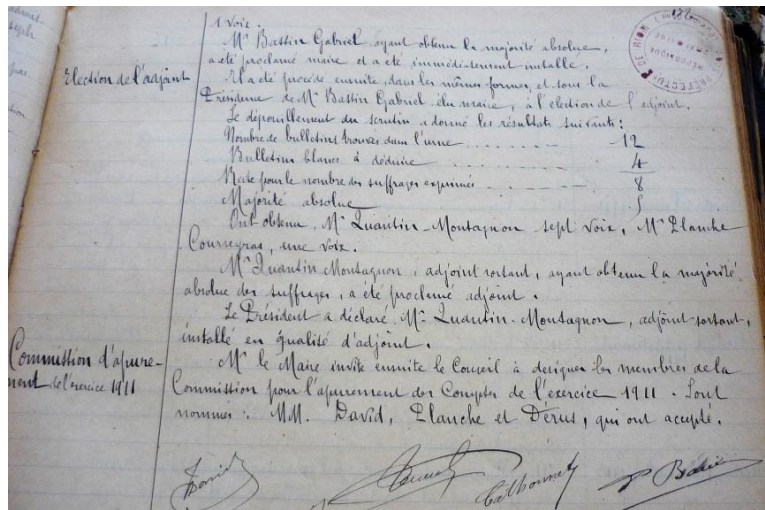 1 voix.
Mr Bastin Gabriel ayant obtenu la majorité absolue,
a été proclamé maire et a été immédiatement installé.
Election de l'adjoint
Il a été procédé ensuite, dans les mêmes formes, et sous la
Présidence de Mr Bastin Gabriel élu maire, à l'élection de l'adjoint.
Le dépouillement du scrutin a donné les résultats suivants :
Nombre de bulletins trouvés dans l'urne 12
Bulletins blancs à déduire 4
Reste pour le nombre des suffrages exprimés 8
Majorité absolue 5
Ont obtenu, Mr Quantin-Montagnon sept voix, Mr Planche
Courneyras, une voix.
Mr Quantin Montagnon, adjoint sortant, ayant obtenu la majorité
absolue des suffrages, a été proclamé adjoint.
Le Président a déclaré Mr Quantin-Montagnon, adjoint sortant,
installé en qualité d'adjoint.
Commission d'apure-
ment de l'exercice 1911
Mr le Maire invite ensuite le Conseil à désigner les membres de la
Commission pour l'apurement des Comptes de l'exercice 1911. Sont
nommés : MM. David, Planche et Dérus, qui ont accepté.